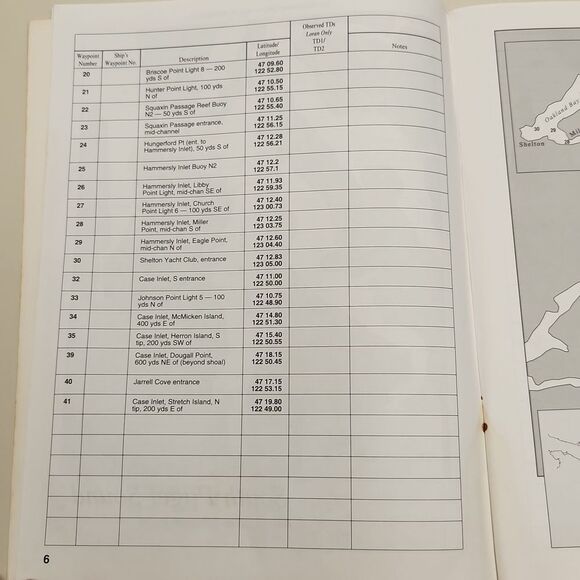 Observed TDs
Loran Only
TD1/
TD2
Waypoint
Number
Ship's
Waypoint No.
Description
Latitude/
Longitude
Notes
20 Briscoe Point Light 8 — 200 47 09.60
yds S of 122 52.80
21 Hunter Point Light, 100 yds 47 10.50
N of 122 55.15
22 Squaxin Passage Reef Buoy 47 10.65
N2 — 50 yds S of 122 55.40
23 Squaxin Passage entrance, 47 11.25
mid-channel 122 56.15
24 Hungerford Pt (ent. to 47 12.28
Hammersly Inlet), 50 yds S of 122 56.21
25 Hammersly Inlet Buoy N2 47 12.2
122 57.1
26 Hammersly Inlet, Libby 47 11.93
Point Light, mid-chan SE of 122 59.35
27 Hammersly Inlet, Church 47 12.40
Point Light 6 — 100 yds SE of 123 00.73
28 Hammersly Inlet, Miller 47 12.25
Point, mid-chan S of 123 03.75
29 Hammersly Inlet, Eagle Point, 47 12.60
mid-chan N of 123 04.40
30 Shelton Yacht Club, entrance 47 12.83
123 05.00
32 Case Inlet, S entrance 47 11.00
122 50.00
33 Johnson Point Light 5 — 100 47 10.75
yds N of 122 48.90
34 Case Inlet, McMicken Island, 47 14.80
400 yds E of 122 51.30
35 Case Inlet, Herron Island, S 47 15.40
tip, 200 yds SW of 122 50.55
39 Case Inlet, Dougall Point, 47 18.15
600 yds NE of (beyond shoal) 122 50.45
40 Jarrell Cove entrance 47 17.15
122 53.15
41 Case Inlet, Stretch Island, N 47 19.80
tip, 200 yds E of 122 49.00
6
Oakland Bay
30 29
28
Shelton